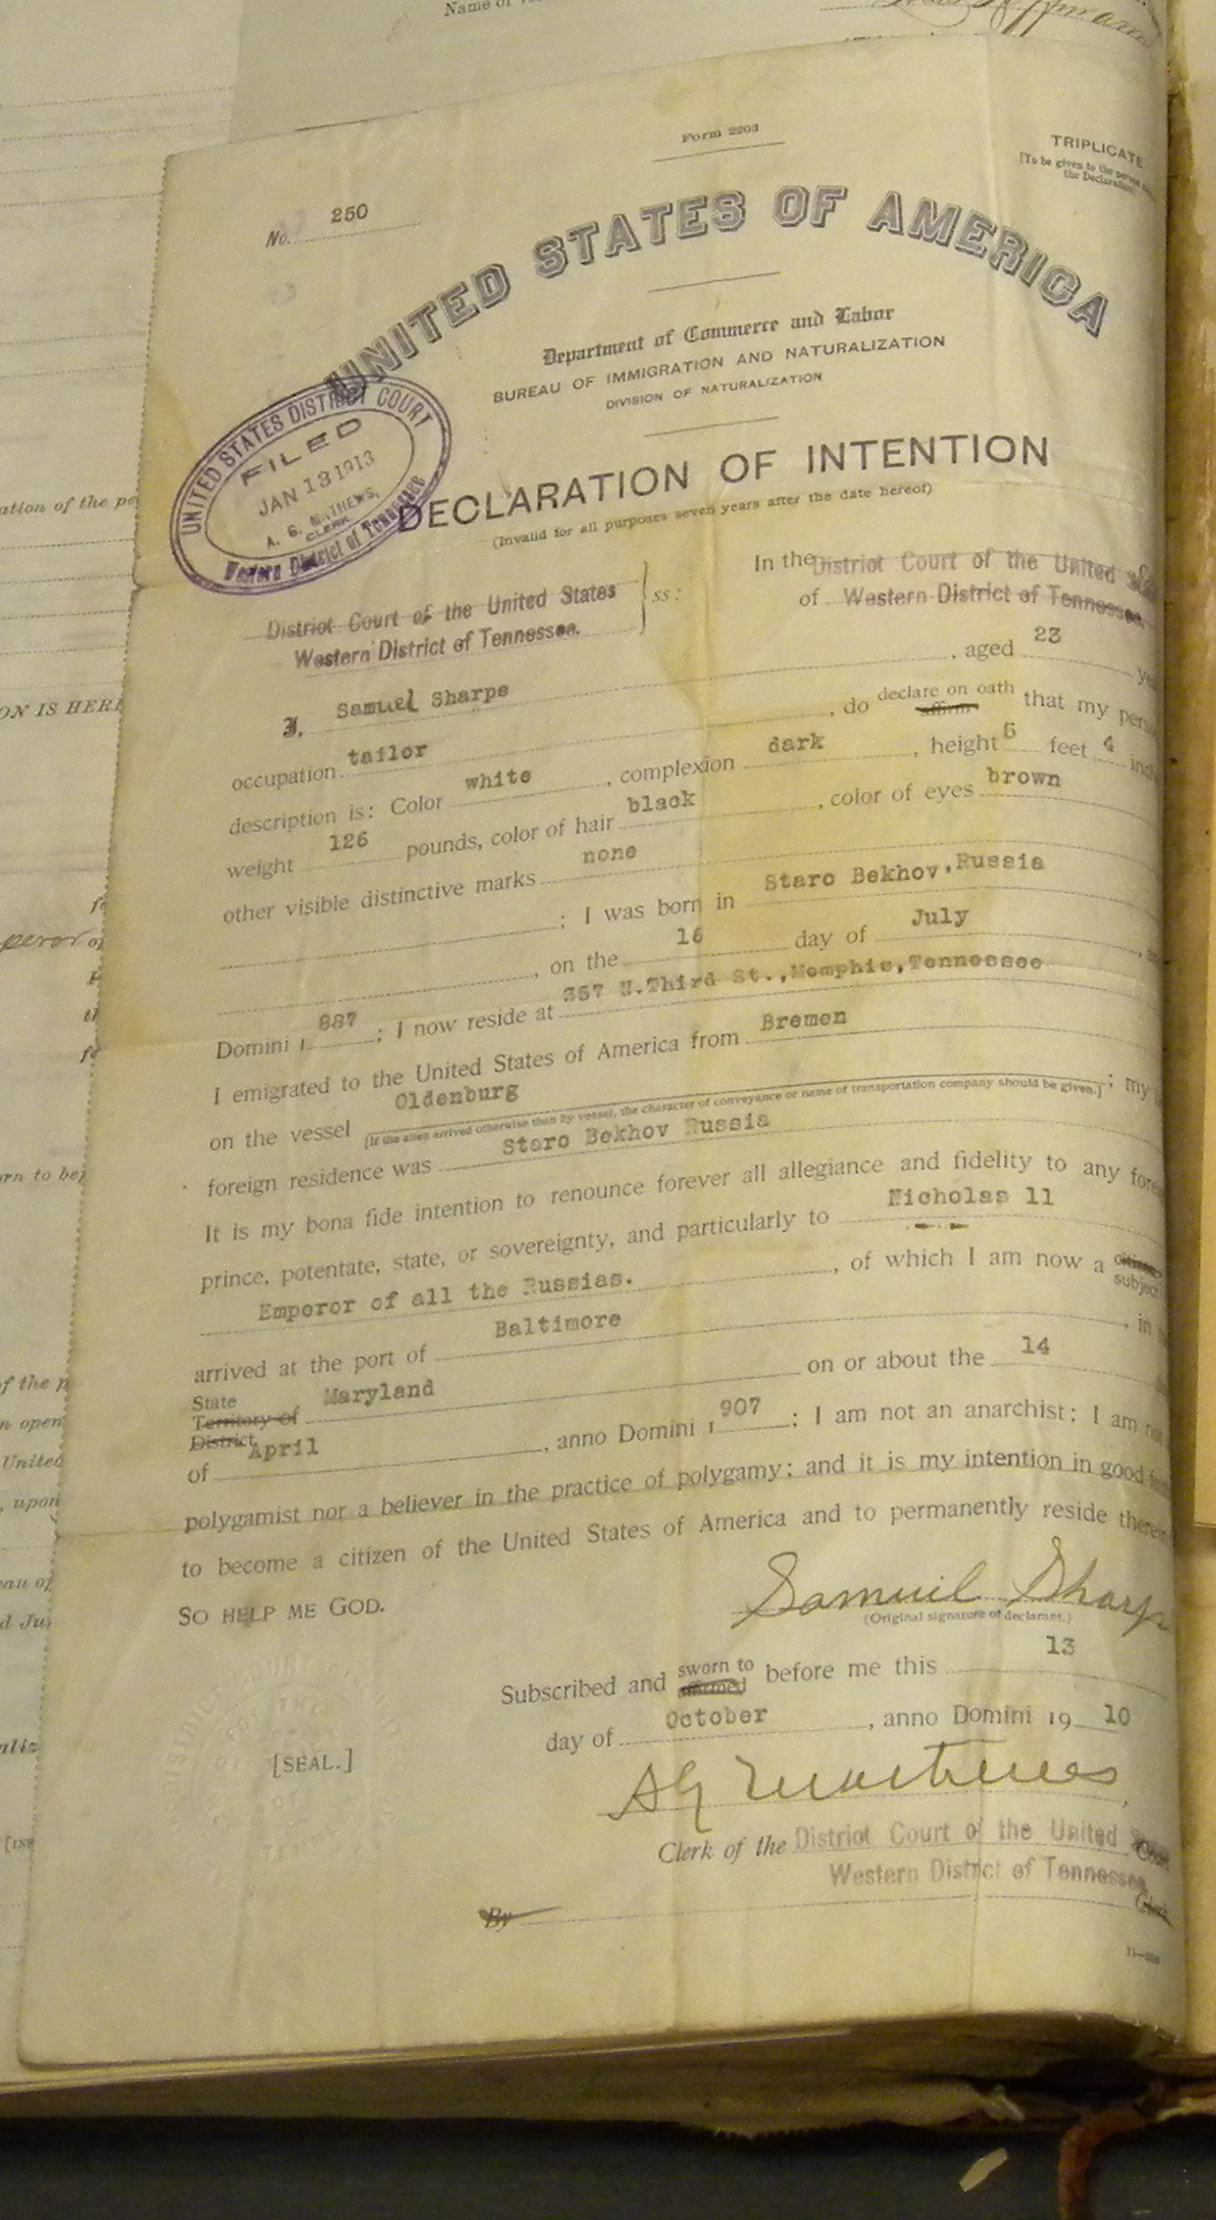 Name of
Form 2203
TRIPLICATE
[To be given to the person
the Declaration]
No. 250
UNITED STATES OF AMERICA
Department of Commerce and Labor
BUREAU OF IMMIGRATION AND NATURALIZATION
DIVISION OF NATURALIZATION
UNITED STATES DISTRICT COURT
FILED
JAN 13 1913
A. G. MATHEWS,
CLERK
Western District of Tennessee
DECLARATION OF INTENTION
(Invalid for all purposes seven years after the date hereof)
District Court of the United States
Western District of Tennessee.
ss:
In the District Court of the United
of Western District of Tennessee.
I, Samuel Sharpe, aged 23
occupation tailor, do declare on oath affirm that my
description is: Color white, complexion dark, height 5 feet 4
weight 126 pounds, color of hair black, color of eyes brown
other visible distinctive marks none
; I was born in Staro Bekhov, Russia
, on the 16 day of July
Domini 1 887; I now reside at 357 N. Third St., Memphis, Tennessee
I emigrated to the United States of America from Bremen
on the vessel Oldenburg; my
[If the alien arrived otherwise than by vessel, the character of conveyance or name of transportation company should be given.]
foreign residence was Staro Bekhov Russia
It is my bona fide intention to renounce forever all allegiance and fidelity to any
prince, potentate, state, or sovereignty, and particularly to Nicholas 11
Emperor of all the Russias., of which I am now a citizen subject
arrived at the port of Baltimore, in
State Territory of District Maryland on or about the 14
of April, anno Domini 1 907; I am not an anarchist; I am
polygamist nor a believer in the practice of polygamy; and it is my intention in good
to become a citizen of the United States of America and to permanently reside
SO HELP ME GOD.
Samuil Sharp
(Original signature of declarant.)
Subscribed and sworn to affirmed before me this 13
day of October, anno Domini 19 10
[SEAL.]
A G Matthews
Clerk of the District Court of the United
Western District of Tennessee
By